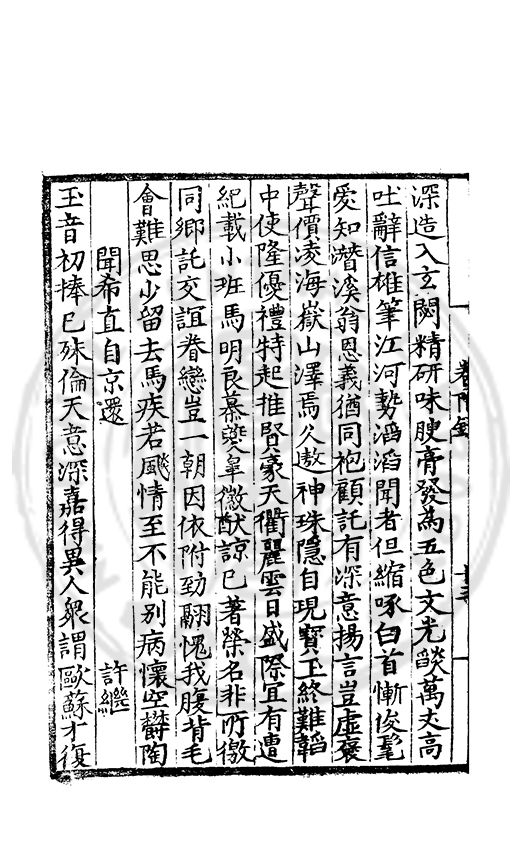 深造入玄闕精研味腴膏發為五色文光燄萬丈高
吐辭信雄筆江河勢滔滔聞者但縮啄白首慚俊髦
愛知潛溪翁恩義猶同袍顧託有深意揚言豈虛褒
聲價凌海嶽山澤焉久遨神珠隱自現寶玉終難韜
中使隆優禮特起推賢豪天衢麗雲日盛際宜有遭
紀載小班馬明良慕夔皐徽猷諒已著榮名非所徼
同鄉託交誼眷戀豈一朝因依附勁翮愧我腹背毛
會難思少留去馬疾若飈情至不能別病懷空鬱陶
聞希直自京還
許繼
玉音初捧已殊倫天意深嘉得異人衆謂歐蘇才復
卷附錄